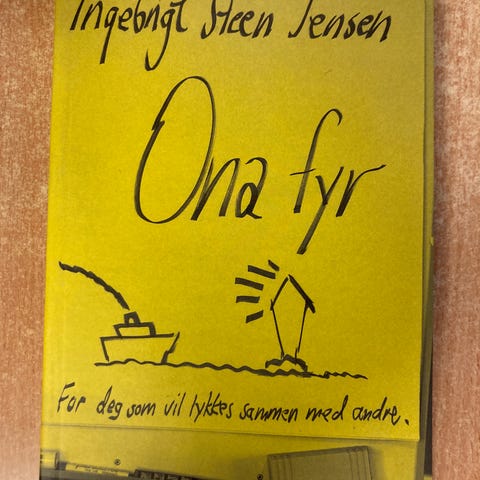 Ingebrigt Steen Jensen
Ona fyr
For deg som vil lykkes sammen med andre.